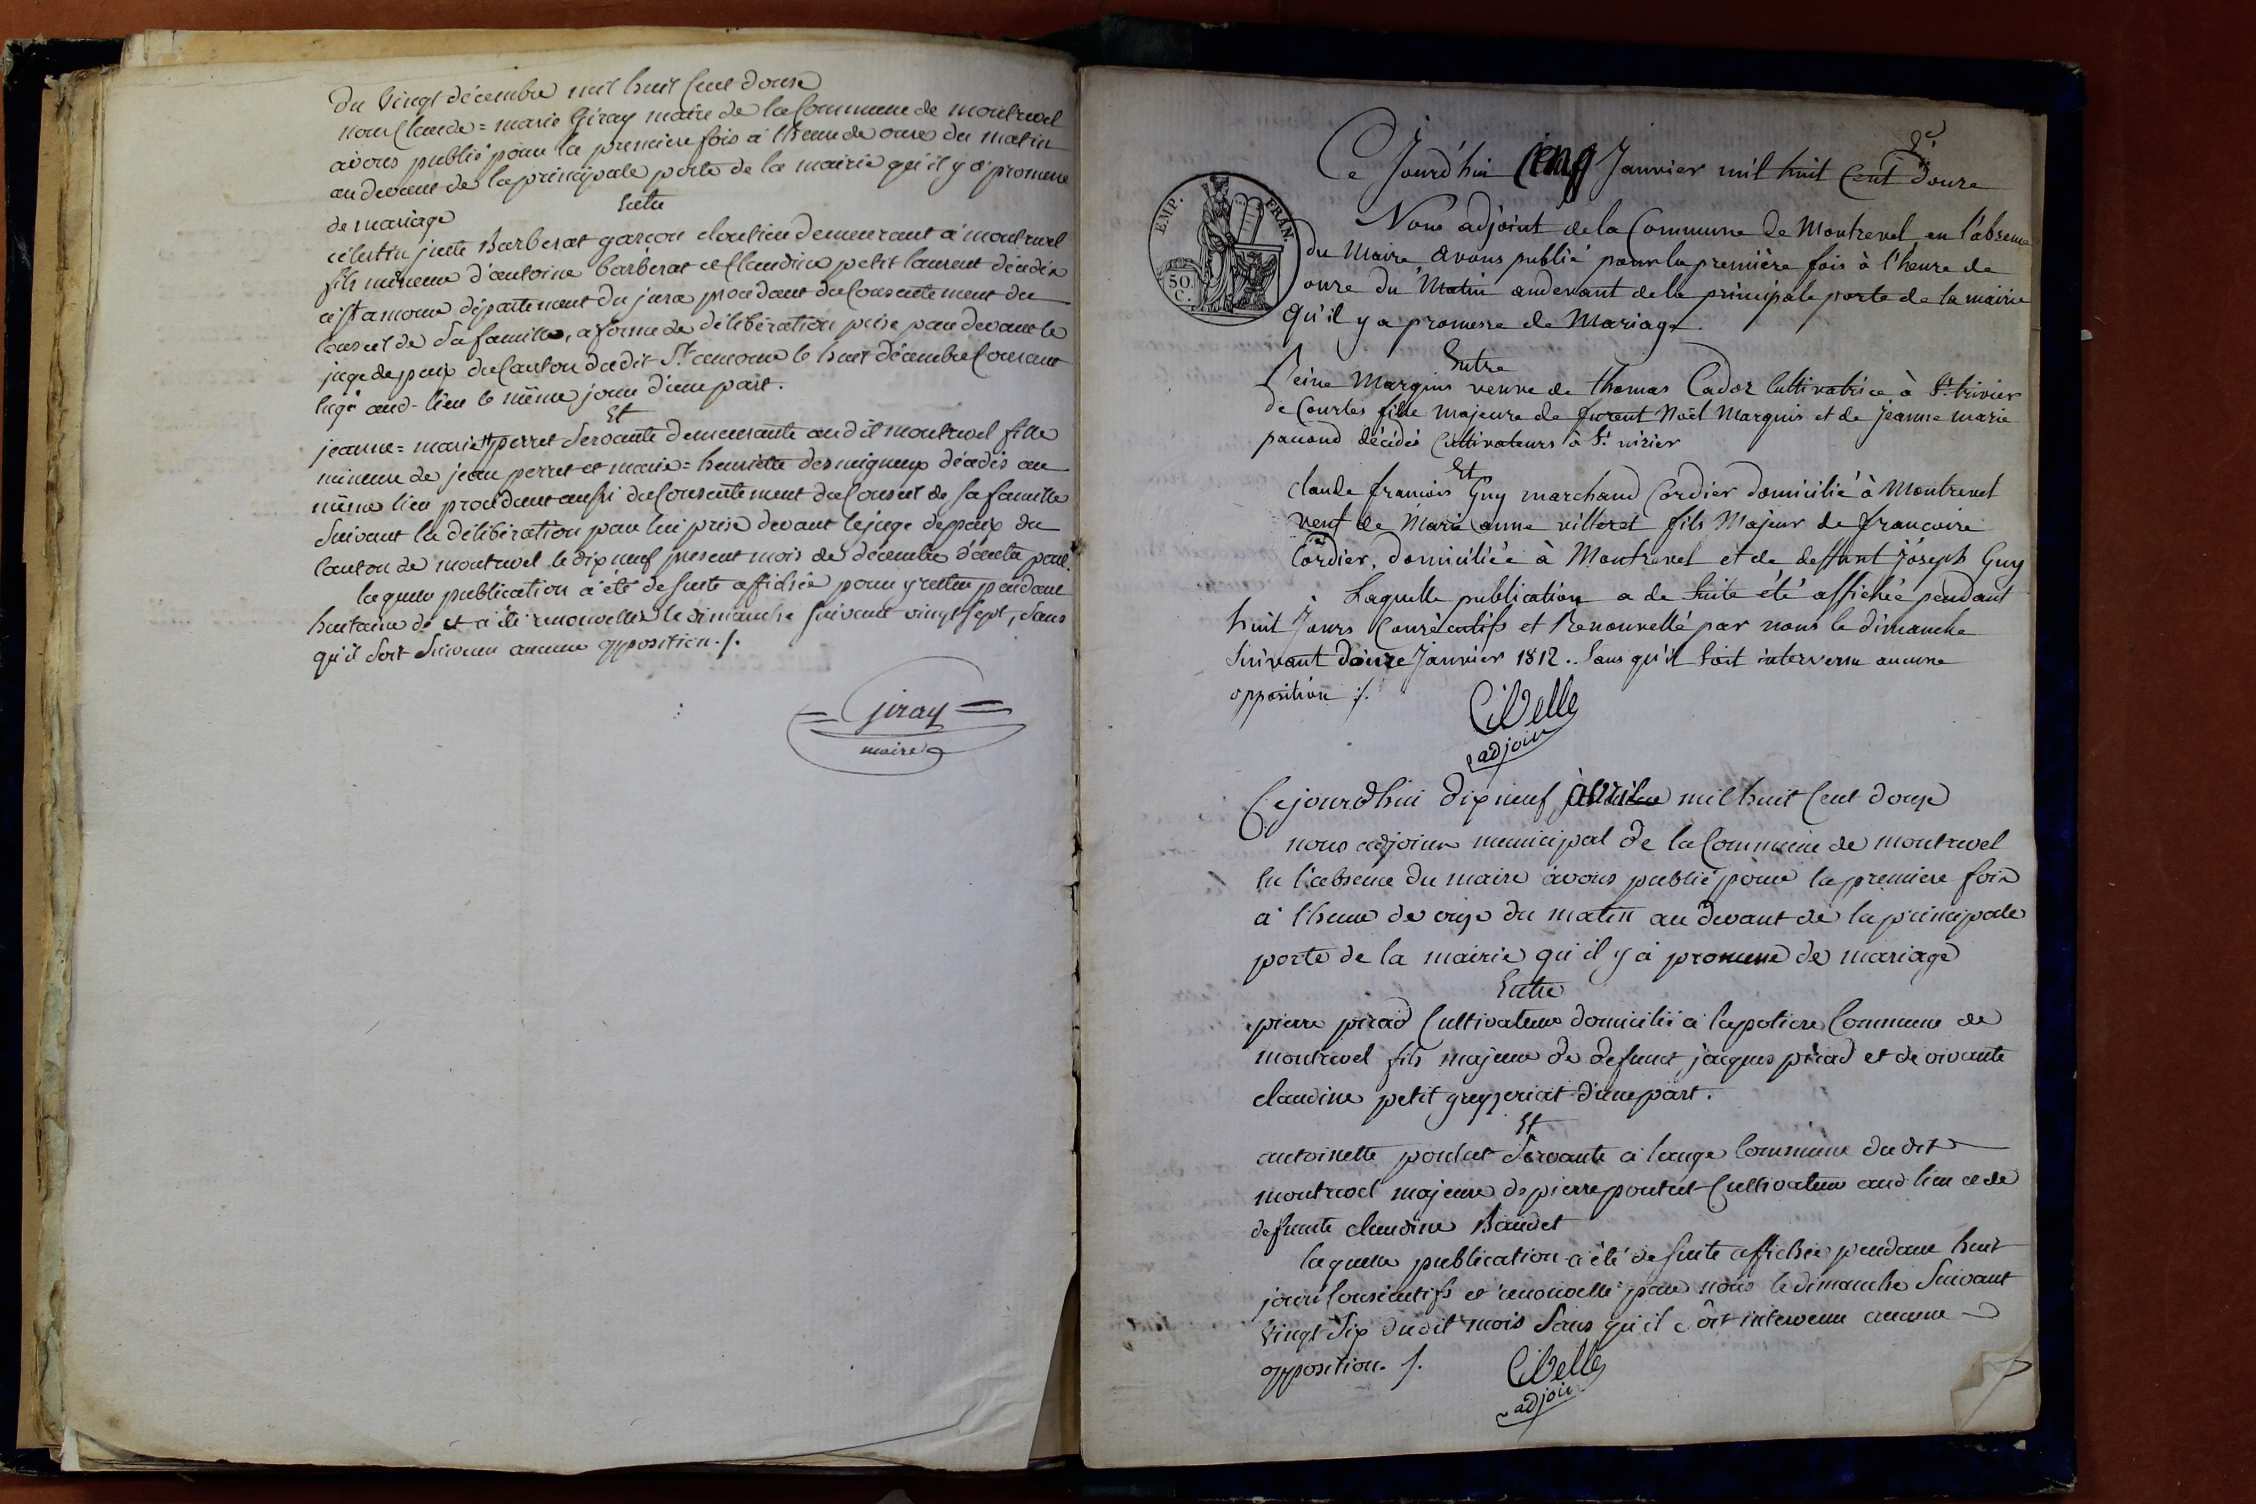 Du vingt décembre mil huit cent douse
nous Claude=marie Giray maire de la Commune de montrevel
avons publié pour la premiere fois à l'heure de onze du matin
au devant de la principale porte de la mairie qu'il y a promesse
de mariage
Entre
célestin juste Barberat garçon cloutier demeurant à montrevel
fils mineur d'antoine barberat et Claudine petit laurent décédés
à St amour département du jura procédant du Consentement du
Conseil de sa famille, a forme de délibération prise par devant le
juge de paix du Canton dudit St. amour le huit décembre Courant
aud. lieu le même jour d'une part.
Et
jeanne=marie perret servante demeurante audit montrevel fille
mineure de jean perret et marie=henriette desmigneux décédés au
même lieu procédant aussi du Consentement du Conseil de sa famille
suivant la délibération par lui prise devant le juge de paix du
Canton de montrevel le dix neuf présent mois de décembre d'autre part.
laquelle publication a été de suite affichée pour y rester pendant
huitaine et a été renouvellée le dimanche suivant vingt sept, sans
qu'il soit survenu aucune opposition./.
Giray
maire
2e
Ce Jourd'hui Cinq Janvier mil huit Cent douze
EMP. FRAN.
50 C.
Nous adjoint de la Commune de Montrevel en l'absence
du Maire avons publié pour la première fois à l'heure de
onze du Matin audevant de la principale porte de la mairie
qu'il y a promesse de Mariage.
Entre
Reine Marguin veuve de thomas Cador Cultivatrice à St. trivier
de Courtes fille majeure de furent Noël Marguin et de Jeanne marie
pauond décédés Cultivateurs à St. nizier
Et
claude francois Guy marchand Cordier domicilié à Montrevel
veuf de Marie anne villeret fils Majeur de francoise
Cordier, domiciliée à Montrevel et de deffunt Jóseph Guy
Laquelle publication a de suite été affichée pendant
huit Jours Consécutifs et Renouvellé par nous le dimanche
suivant douze Janvier 1812. Sans qu'il soit intervenu aucune
opposition ./.
Cibelle
adjoin
Cejourdhui dix neuf avril mil huit Cent douze
nous adjoint municipal de la Commune de montrevel
en l'absence du maire avons publié pour la premiere fois
a l'heure de onze du matin au devant de la principale
porte de la mairie qu'il y a promesse de mariage
Entre
pierre picad Cultivateur domicilié à lapotiere Commune de
montrevel fils majeur de defunct jacques picad et de vivante
claudine petit greyzeriat d'une part.
Et
antoinette pontet servante à lange Commune dudit
montrevel majeure de pierre pontet Cultivateur aud lieu et de
defunte claudine Baudet
laquelle publication a été de suite affichée pendant huit
jours Consécutifs et renouvellé par nous le dimanche suivant
vingt six dudit mois sans qu'il soit intervenu aucune
opposition. /.
Cibelle
adjoin